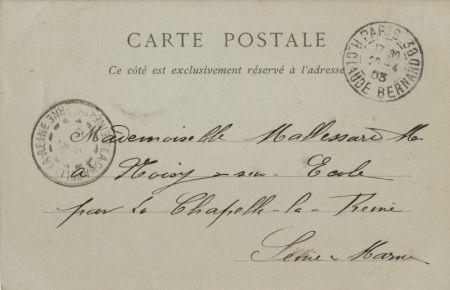 CARTE POSTALE
Ce côté est exclusivement réservé à l'adresse
PARIS 38
R. CLAUDE BERNARD
17 30
28 -4
03
LA CHAPELLE-LA-REINE
Mademoiselle Mallessard M
à Noisy-sur-Ecole
par La Chapelle-la-Reine
Seine & Marne